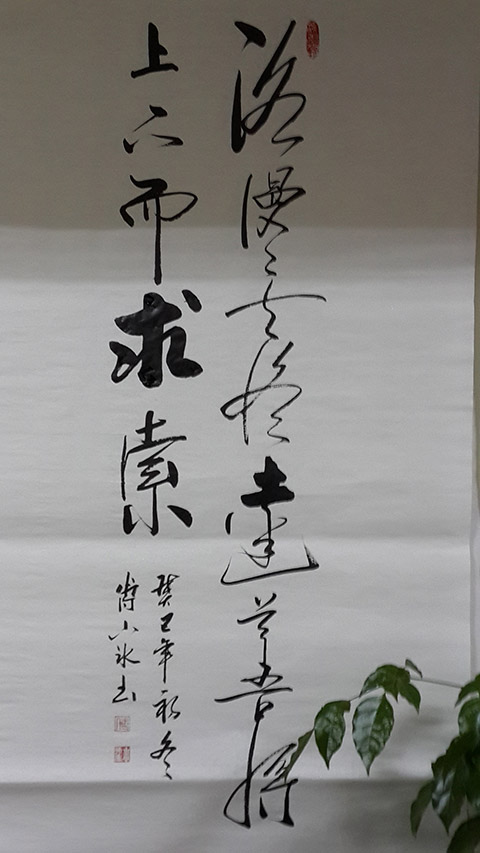 路漫々其修遠兮吾将
上下而求索
癸巳年初冬
傅小冰书